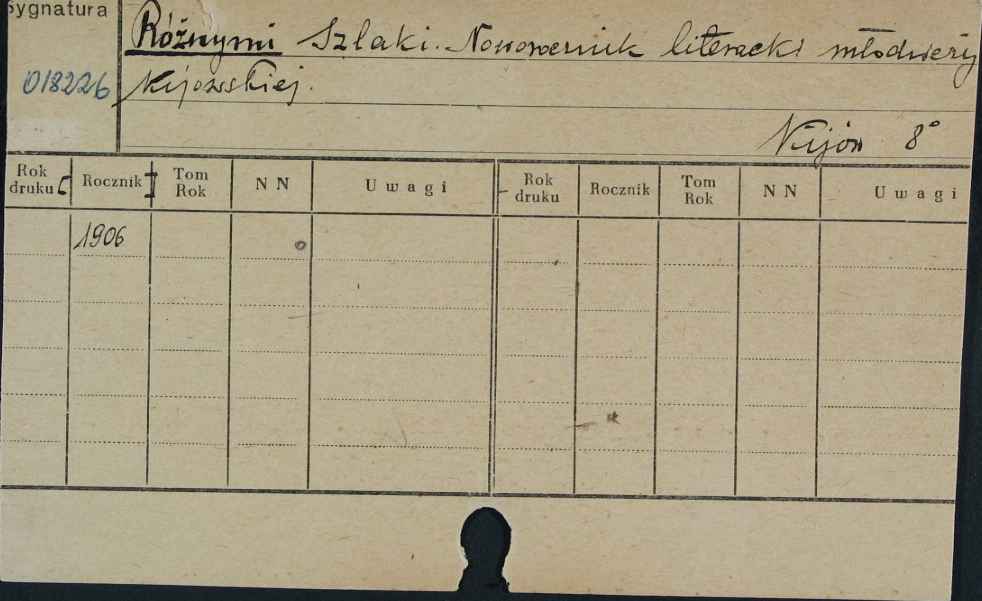 Sygnatura
Różnymi Szlaki. Noworocznik literacki młodzieży
018226 Kijowskiej.
Kijów 8°
Rok druku [ Rocznik ] Tom Rok N N Uwagi Rok druku Rocznik Tom Rok N N Uwagi
1906